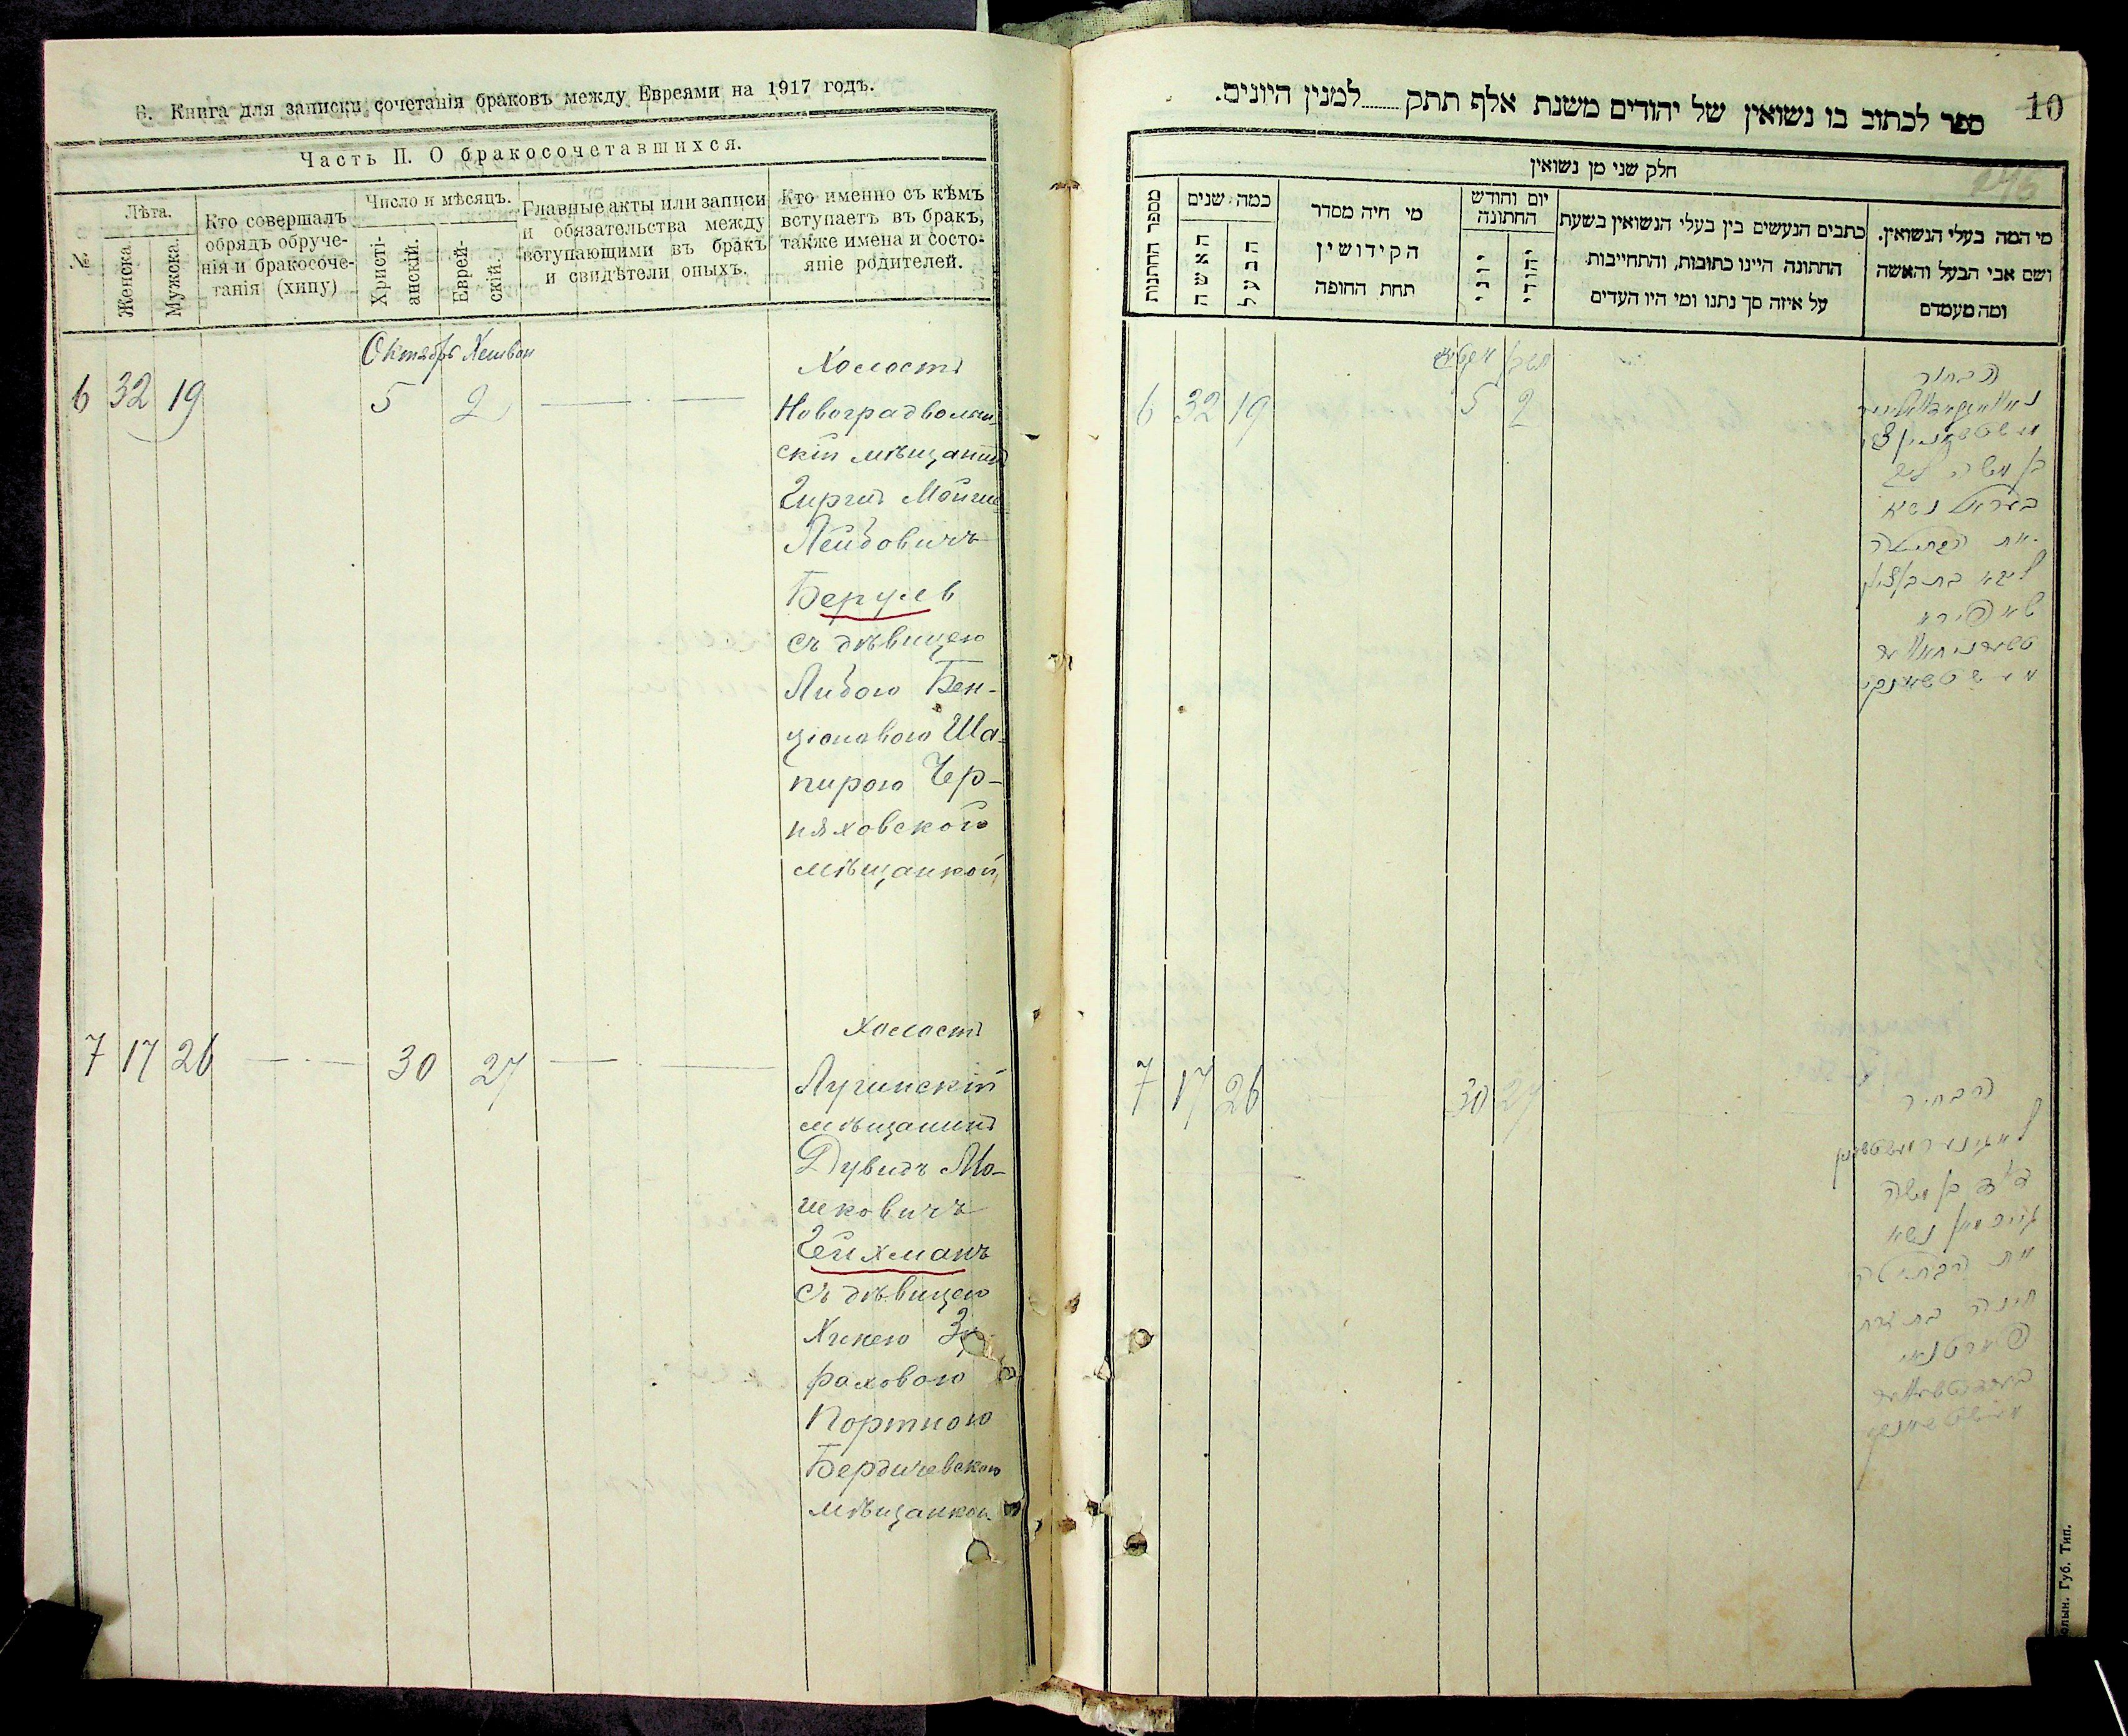 6. Книга для записки сочетанія браковъ между Евреями на 1917 годъ.
Часть II. О бракосочетавшихся.
№
Лѣта.
Женска
Мужска.
Кто совершалъ
обрядъ обруче-
нія и бракосоче-
танія (хипу)
Число и мѣсяцъ.
Христі-
анскій.
Еврей-
скій.
Главные акты или записи
и обязательства между
вступающими въ бракъ
и свидѣтели оныхъ.
Кто именно съ кѣмъ
вступаетъ въ бракъ,
также имена и состо-
яніе родителей.
Октябрь Хешван
6 32 19 5 2
Холостъ
Новоградволын
скій мѣщанинъ
Гиршъ Мойше
Лейбовичъ
Берулв
съ дѣвицею
Либою Бен-
ціоновою Ша-
пирою Чер-
няховской
мѣщанкой
7 17 26 30 27
Холостъ
Лугинскій
мѣщанинъ
Дувидъ Мо-
шковичъ
Гейхманъ
съ дѣвицею
Хинею
раховою
Портною
Бердичевскою
мѣщанкой
10
ספר לכתוב בו נשואין של יהודים משנת אלף תתק למנין היונים.
חלק שני מן נשואין
מספר החתונות
כמה שנים
האשה
הבעל
מי היה מסדר
הקידושין
תחת החופה
יום וחודש
החתונה
יוני
יהודי
כתבים הנעשים בין בעלי הנשואין בשעת
החתונה היינו כתובות, והתחייבות
על איזה סך נתנו ומי היו העדים
מי המה בעלי הנשואין.
ושם אבי הבעל והאשה
ומה מעמדם
6 32 19 5 2
הבחור
בן משה ליב
נשא
את הבתולה
ליבא בת בן ציון
שאפירא
7 17 26 30 27
הבחור
דוד בן משה
נשא
את הבתולה
חינה בת זרח
פארטנאי
Губ. Тип.